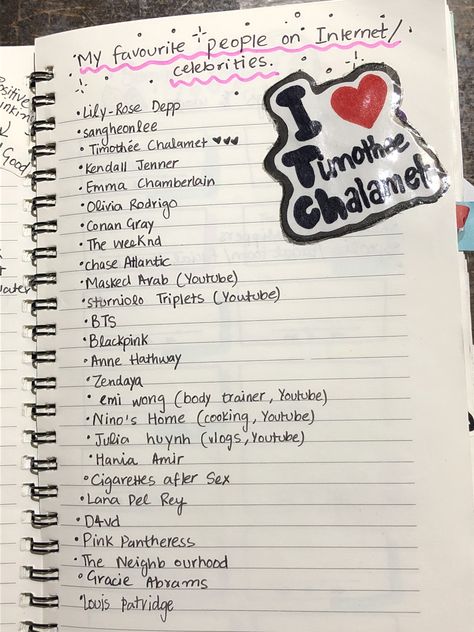 My favourite people on Internet/
celebrities.
• Lily-Rose Depp
• sangheonlee
• Timothée Chalamet ♥♥♥
• Kendall Jenner
• Emma Chamberlain
• Olivia Rodrigo
• Conan Gray
• The weeknd
• chase Atlantic
• Masked Arab (Youtube)
• sturniolo Triplets (Youtube)
• BTS
• Blackpink
• Anne Hathway
• Zendaya
• emi wong (body trainer, Youtube)
• Nino's Home (cooking, Youtube)
• Julia huynh (vlogs, Youtube)
• Hania Amir
• Cigarettes after Sex
• Lana Del Rey
• D4vd
• Pink Pantheress
• The Neighb ourhood
• Gracie Abrams
• Louis Patridge
I ♥
Timothée
Chalamet